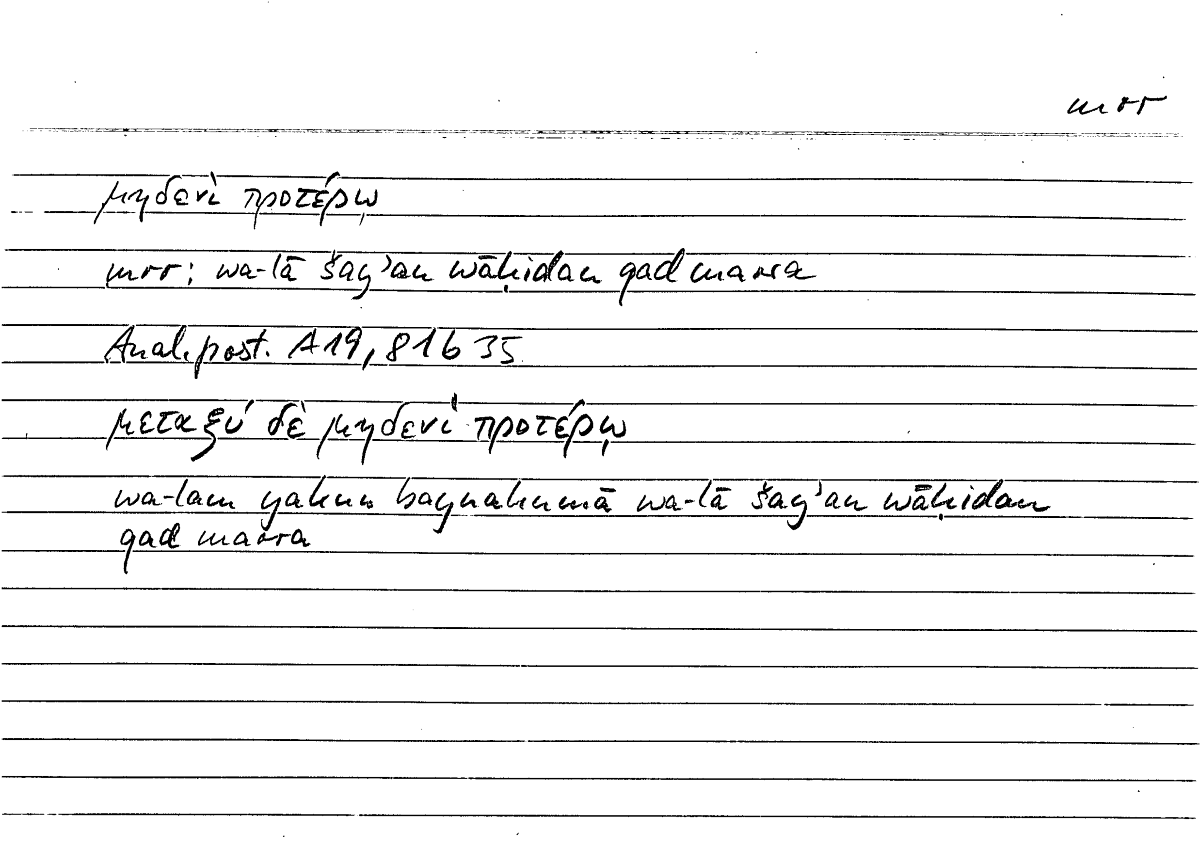 mrr
μηδενὶ προτέρῳ
mrr; wa-lā šay'an wāḥidan qad marra
Anal. post. A19, 81b35
μεταξύ δὲ μηδενὶ προτέρῳ
wa-lam yakun baynahumā wa-lā šay'an wāḥidan
qad marra